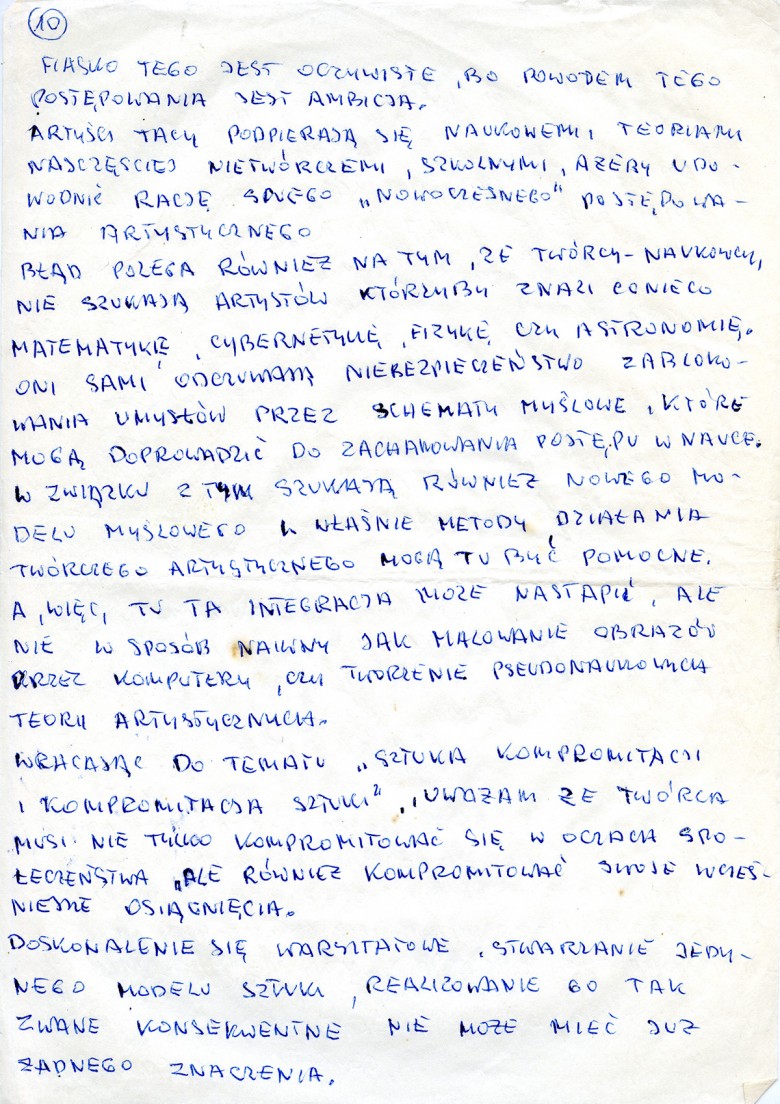 10
FIASKO TEGO JEST OCZYWISTE, BO POWODEM TEGO
POSTĘPOWANIA JEST AMBICJA.
ARTYŚCI TACY PODPIERAJĄ SIĘ NAUKOWEMI TEORIAMI
NAJCZĘŚCIEJ NIETWÓRCZEMI, SZKOLNYMI, AŻEBY UDO-
WODNIĆ RACJĘ SWEGO „NOWOCZESNEGO" POSTĘPOWA-
NIA ARTYSTYCZNEGO
BŁĄD POLEGA RÓWNIEŻ NA TYM, ŻE TWÓRCY-NAUKOWCY,
NIE SZUKAJĄ ARTYSTÓW KTÓRZYBY ZNALI CONIECO
MATEMATYKĘ, CYBERNETYKĘ, FIZYKĘ CZY ASTRONOMIĘ.
ONI SAMI ODCZUWAJĄ NIEBEZPIECZEŃSTWO ZABLOKO-
WANIA UMYSŁÓW PRZEZ SCHEMATY MYŚLOWE, KTÓRE
MOGĄ DOPROWADZIĆ DO ZACHAMOWANIA POSTĘPU W NAUCE.
W ZWIĄZKU Z TYM SZUKAJĄ RÓWNIEŻ NOWEGO MO-
DELU MYŚLOWEGO I WŁAŚNIE METODY DZIAŁANIA
TWÓRCZEGO ARTYSTYCZNEGO MOGĄ TU BYĆ POMOCNE.
A, WIĘC, TU TA INTEGRACJA MOŻE NASTĄPIĆ, ALE
NIE W SPOSÓB NAIWNY JAK MALOWANIE OBRAZÓW
PRZEZ KOMPUTERY, CZY TWORZENIE PSEUDONAUKOWYCH
TEORII ARTYSTYCZNYCH.
WRACAJĄC DO TEMATU „SZTUKA KOMPROMITACJI
I KOMPROMITACJA SZTUKI", UWAŻAM ŻE TWÓRCA
MUSI NIE TYLKO KOMPROMITOWAĆ SIĘ W OCZACH SPO-
ŁECZEŃSTWA, ALE RÓWNIEŻ KOMPROMITOWAĆ SWOJE WCZEŚ-
NIEJSZE OSIĄGNIĘCIA.
DOSKONALENIE SIĘ WARSZTATOWE, STWARZANIE JEDY-
NEGO MODELU SZTUKI, REALIZOWANIE GO TAK
ZWANE KONSEKWENTNE NIE MOŻE MIEĆ JUŻ
ŻADNEGO ZNACZENIA.